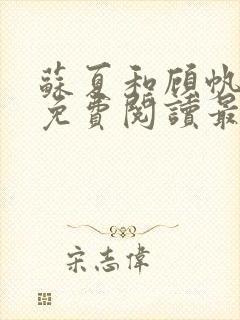 蘇夏和顧帆
免費閱讀最
宋志偉